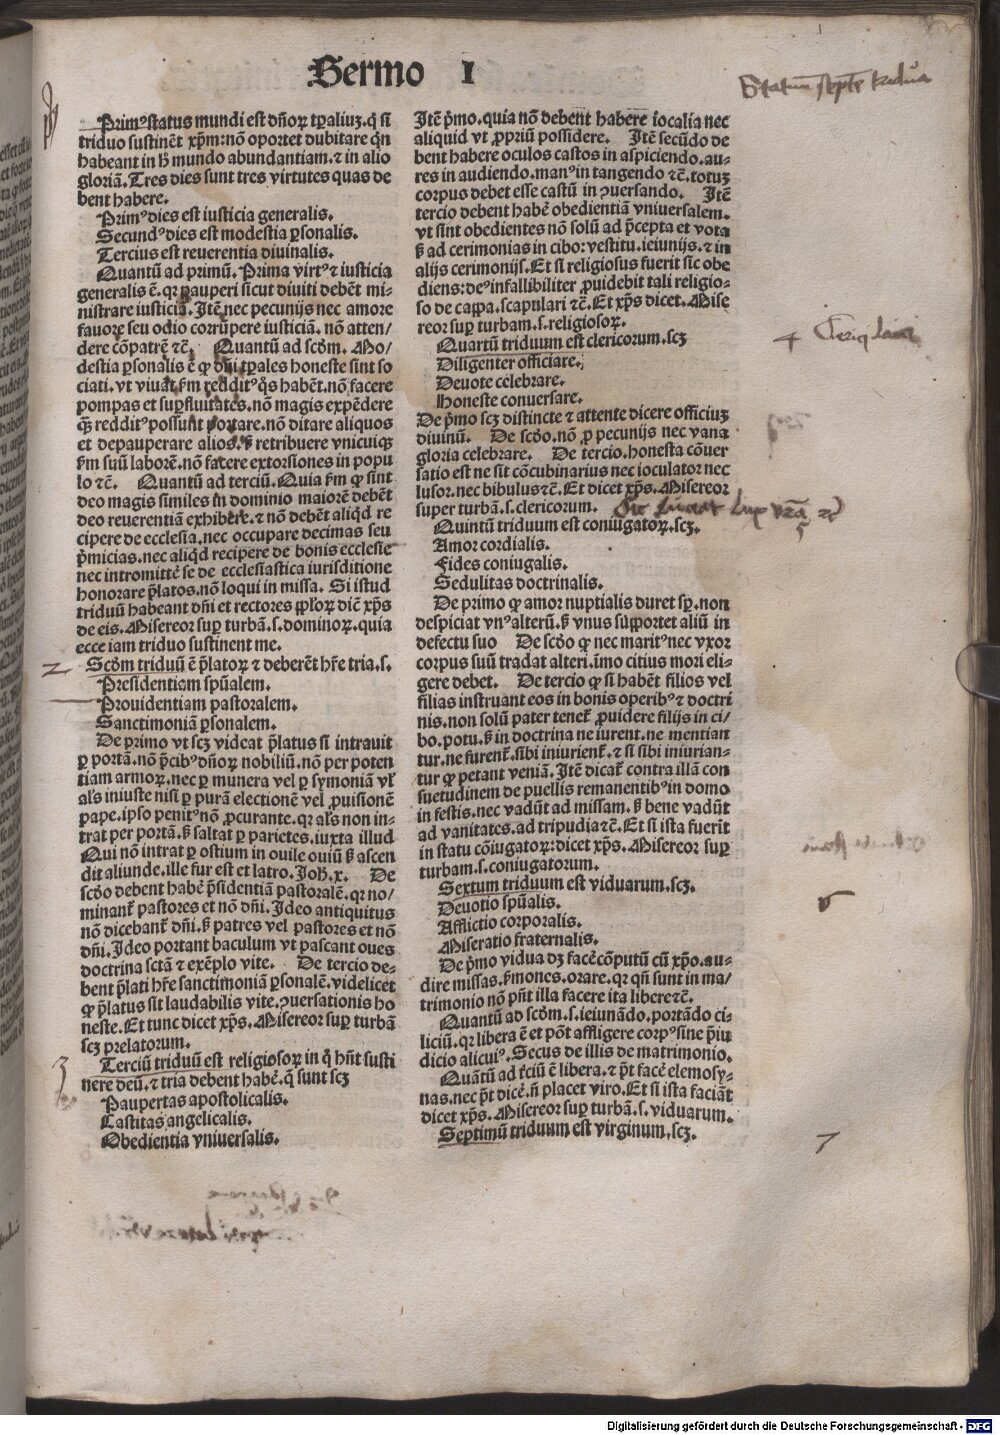 Sermo I
Primꝰ status mundi est dñoꝝ tꝑaliuʒ. q̇ si
triduo sustinēt xp̄m: nō oportet dubitare qͥn
habeant in hͦ mundo abundantiam. ⁊ in alio
gloriā. Tres dies sunt tres virtutes quas de
bent habere.
Primꝰ dies est iusticia generalis.
Secundꝰ dies est modestia ꝑsonalis.
Tercius est reuerentia diuinalis.
Quantū ad primū. Prima virtꝰ ē iusticia
generalis ē. qꝛ pauperi sicut diuiti debēt mi-
nistrare iusticiā. Itē nec pecunijs nec amore
fauore seu odio corrūpere iusticiā. nō atten/
dere cōpatrē ⁊c̄. Quantū ad scd̄m. Mo/
destia ꝑsonalis ē ꝙ dñi tꝑales honeste sint so
ciati. vt viuāt ẜm redditꝰ qͦs habēt. nō facere
pompas et suꝑfluitates. nō magis expēdere
qͣꝫ redditꝰ possunt portare. nō ditare aliquos
et depauperare alios. ß retribuere vnicuiqꝫ
ẜm suū laborē. nō facere extorsiones in popu
lo ⁊c̄. Quantū ad terciū. Quia ẜm ꝙ sint
deo magis similes in dominio maiorē debēt
deo reuerentiā exhibere. ⁊ nō debēt aliqd̓ re
cipere de ecclesia. nec occupare decimas seu
p̄micias. nec aliqd̓ recipere de bonis ecclesie
nec intromittē se de ecclesiastica iurisditione
honorare p̄latos. nō loqui in missa. Si istud
triduū habeant dñi et rectores ppl̓oꝝ dic̄ xp̄s
de eis. Misereor suꝑ turbā. s. dominoꝝ. quia
ecce iam triduo sustinent me.
2 Scd̄m triduū ē p̄latoꝝ ⁊ deberēt hr̄e tria. s.
Presidentiam spūalem.
Prouidentiam pastoralem.
Sanctimoniā ꝑsonalem.
De primo vt scꝫ videat p̄latus si intrauit
ꝑ portā. nō p̄cibꝰ dñoꝝ nobiliū. nō per poten
tiam armoꝝ. nec ꝑ munera vel ꝑ symoniā vl̓
al̓s iniuste nisi ꝑ purā electionē vel ꝓuisionē
pape. ipso penitꝰ nō ꝓcurante. qꝛ al̓s non in-
trat per portā. ß saltat ꝑ parietes. iuxta illud
Qui nō intrat ꝑ ostium in ouile ouiū ß ascen
dit aliunde. ille fur est et latro. Joh̄. x. De
scd̓o debent habē p̄sidentiā pastoralē. qꝛ no/
minant̄ pastores et nō dñi. Ideo antiquitus
nō dicebant̄ dñi. ß patres vel pastores et nō
dñi. Ideo portant baculum vt pascant oues
doctrina sctā ⁊ exēplo vite. De tercio de-
bent p̄lati hr̄e sanctimoniā ꝑsonalē. videlicet
ꝙ p̄latus sit laudabilis vite. ꝯuersationis ho
neste. Et tunc dicet xp̄s. Misereor suꝑ turbā
scꝫ prelatorum.
3 Terciū triduū est religiosoꝝ in q̇ hn̄t susti
nere deū. ⁊ tria debent habē. q̄ sunt scꝫ
Paupertas apostolicalis.
Castitas angelicalis.
Obedientia vniuersalis.
Itē p̄mo. quia nō debent habere iocalia nec
aliquid vt ꝓpriū possidere. Itē secūdo de
bent habere oculos castos in aspiciendo. au-
res in audiendo. manꝰ in tangendo ⁊c̄. totuʒ
corpus debet esse castū in ꝯuersando. Itē
tercio debent habē obedientiā vniuersalem.
vt sint obedientes nō solū ad p̄cepta et vota
ß ad cerimonias in cibo: vestitu. ieiunijs. ⁊ in
alijs cerimonijs. Et si religiosus fuerit sic obe
diens: deꝰ infallibiliter ꝓuidebit tali religio-
so de cappa. scapulari ⁊c̄. Et xp̄s dicet. Mise
reor suꝑ turbam. s. religiosoꝝ.
Quartū triduum est clericorum. scꝫ
Diligenter officiare.
Deuote celebrare.
Honeste conuersare.
De p̄mo scꝫ distincte ⁊ attente dicere officiuʒ
diuinū. De scd̓o. nō ꝓ pecunijs nec vana
gloria celebrare. De tercio. honesta cōuer
satio est ne sit cōcubinarius nec ioculator nec
lusor. nec bibulus ⁊c̄. Et dicet xp̄s. Misereor
super turbā. s. clericorum.
Quintū triduum est coniugatoꝝ. scꝫ.
Amor cordialis.
Fides coniugalis.
Sedulitas doctrinalis.
De primo ꝙ amor nuptialis duret sꝑ. non
despiciat vnꝰ alterū. ß vnus supportet aliū in
defectu suo De scd̓o ꝙ nec maritꝰ nec vxor
corpus suū tradat alteri. imo citius mori eli-
gere debet. De tercio ꝙ si habēt filios vel
filias instruant eos in bonis operibꝰ ⁊ doctri
nis. non solū pater tenet̄ ꝓuidere filijs in ci/
bo. potu. ß in doctrina ne iurent. ne mentian
tur. ne furent̄. sibi iniurient̄. ⁊ si sibi iniurian-
tur ꝙ petant veniā. Itē dicat̄ contra illā con
suetudinem de puellis remanentibꝰ in domo
in festis. nec vadūt ad missam. ß bene vadūt
ad vanitates. ad tripudia ⁊c̄. Et si ista fuerit
in statu cōiugatoꝝ: dicet xp̄s. Misereor suꝑ
turbam. s. coniugatorum.
Sextum triduum est viduarum. scꝫ.
Deuotio spūalis.
Afflictio corporalis.
Miseratio fraternalis.
De p̄mo vidua dꝫ facē cōputū cū xp̄o. au-
dire missas. ẜmones. orare. qꝛ qn̄ sunt in ma/
trimonio nō pn̄t illa facere ita libere ⁊c̄.
Quantū ad scd̄m. s. ieiunādo. portādo ci-
liciū. qꝛ libera ē et pōt affligere corpꝰ sine p̄iu
dicio alicuiꝰ. Secus de illis de matrimonio.
Quātū ad t̓ciū ē libera. ⁊ p̄t facē elemosy-
nas. nec p̄t dicē. n̄ placet viro. Et si ista faciāt
dicet xp̄s. Misereor suꝑ turbam. s. viduarum.
Septimū triduum est virginum. scꝫ.
4
5
6
7
Digitalisierung gefördert durch die Deutsche Forschungsgemeinschaft - DFG